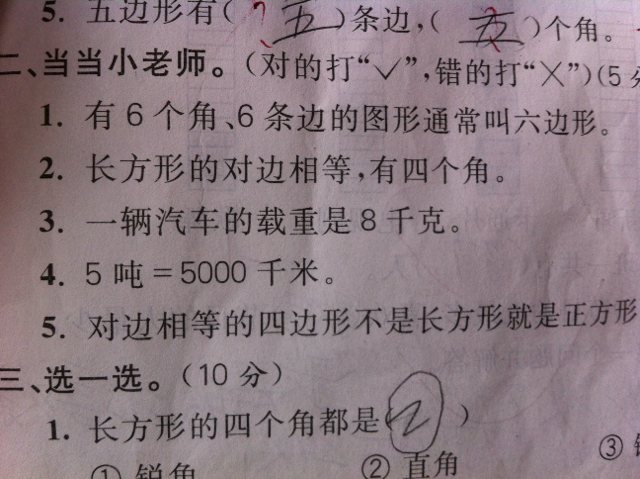 5. 五边形有(五)条边,(五)个角。
二、当当小老师。(对的打“✓”,错的打“╳”)(5分
1. 有6个角、6条边的图形通常叫六边形。
2. 长方形的对边相等,有四个角。
3. 一辆汽车的载重是8千克。
4. 5吨=5000千米。
5. 对边相等的四边形不是长方形就是正方形
三、选一选。(10分)
1. 长方形的四个角都是(2)
① 锐角 ② 直角 ③